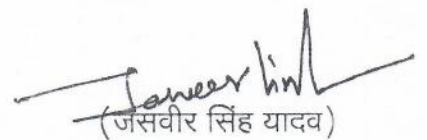 Jasveer Singh
(जसवीर सिंह यादव)